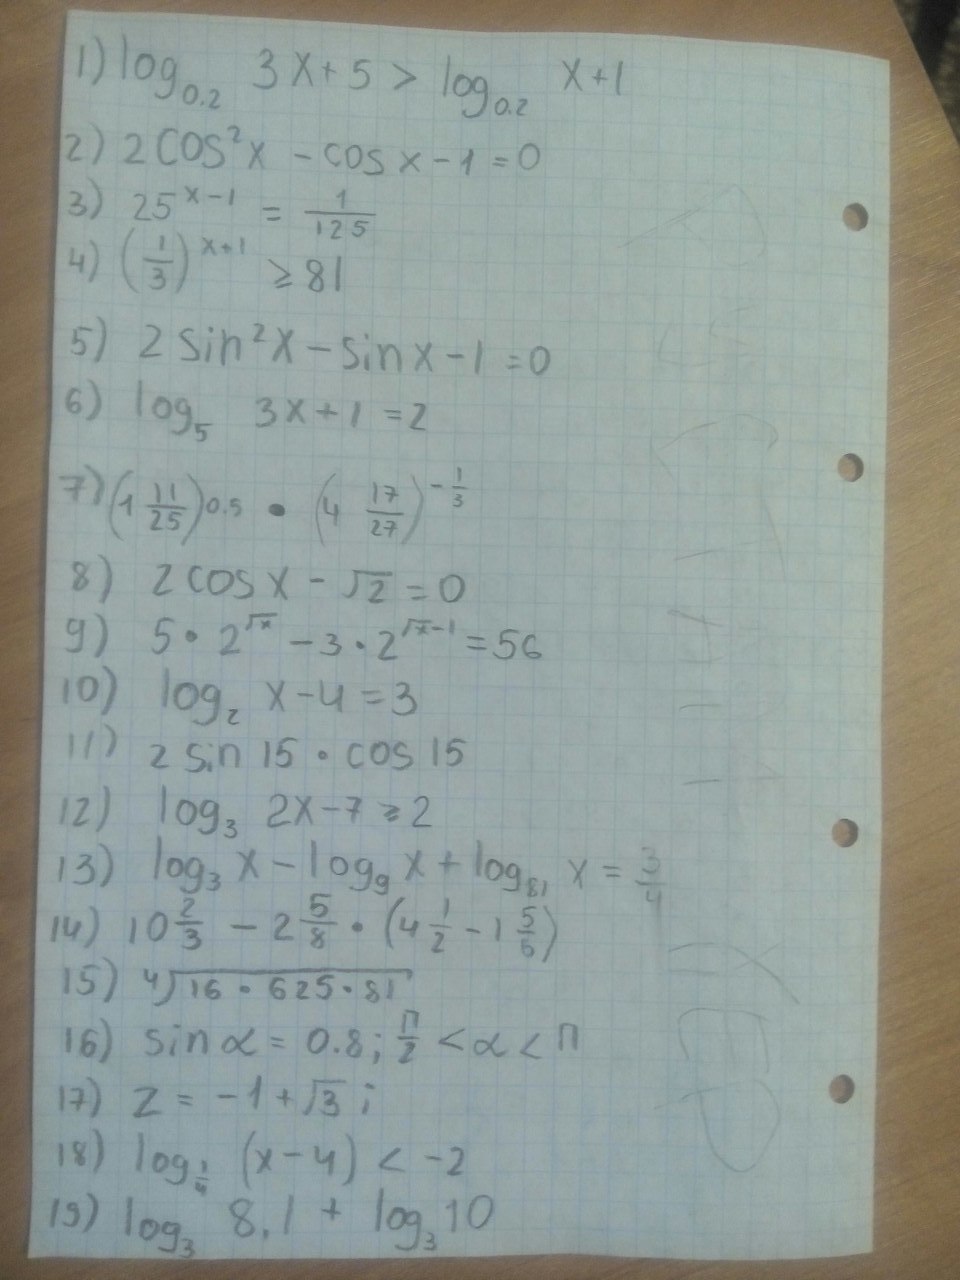 1) log₀.₂ 3x+5 > log₀.₂ x+1
2) 2cos²x - cos x - 1 = 0
3) 25^(x-1) = 1/125
4) (1/3)^(x+1) ≥ 81
5) 2 sin²x - sin x - 1 = 0
6) log₅ 3x+1 = 2
7) (1 11/25)^0.5 • (4 17/27)^(-1/3)
8) 2 cos x - √2 = 0
9) 5 • 2^√x - 3 • 2^(√x-1) = 56
10) log₂ x-4 = 3
11) 2 sin 15 • cos 15
12) log₃ 2x-7 ≥ 2
13) log₃ x - log₉ x + log₈₁ x = 3/4
14) 10 2/3 - 2 5/8 • (4 1/2 - 1 5/6)
15) ∜(16 • 625 • 81)
16) sin α = 0.8; π/2 < α < π
17) z = -1 + √3 i
18) log_(1/4) (x-4) < -2
19) log₃ 8.1 + log₃ 10